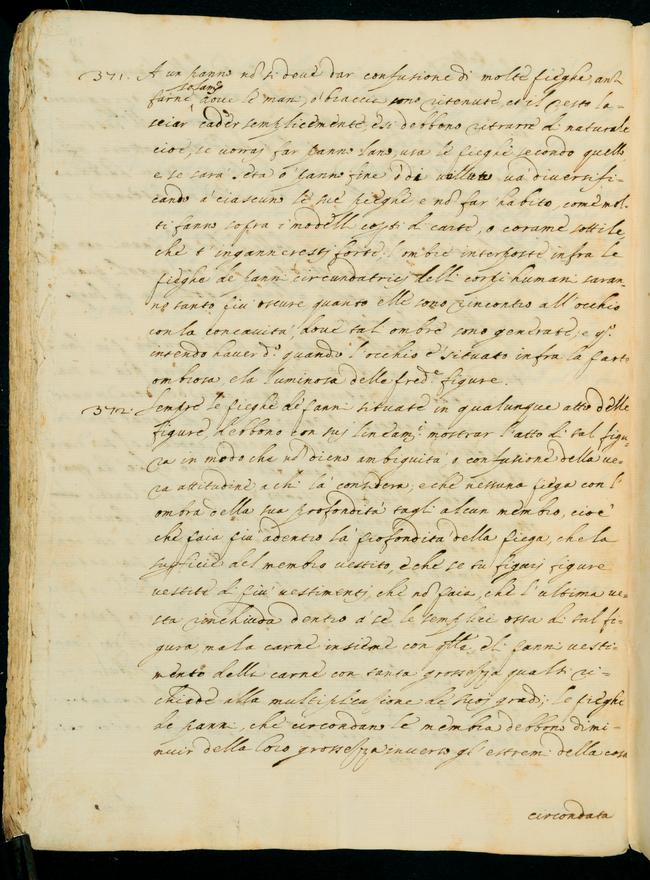 371. A un panno nõ si deve dar confusione di molte pieghe, anzi
farne solam.te dove le mani, o braccia sono ritenute, et il resto la-
sciar cader semplicemente, e si debbono ritrarre di naturale
cioè, se vorrai far panno lano, usa le pieghe secondo quello
e se sarà seta o panno fine ò di velluto va diversifi-
cando à ciascuno le sue pieghe e nõ far habito, come mol-
ti fanno sopra i modelli coperti di carte, o corame sottile
che t'inganneresti forte, l'ombre interposte infra le
pieghe de panni circundatrici delli corpi humani saran-
no tanto piu oscure quanto elle sono rincontro all'occhio
con la concavità, dove tal ombre sono generate, e q.o
intendo haver d.o quando l'occhio è situato infra la parte
ombrosa, e la luminosa delle pred.e figure.
372. Sempre le pieghe de panni situate in qualunque atto delle
figure, debbono con suoi lineam.ti mostrar l'atto di tal figu-
ra in modo che nõ dieno ambiguità o confusione della ve-
ra attitudine a chi la considera, e che nessuna piega con l'
ombra della sua profondità tagli alcun membro, cioè
che paia piu adentro la profondità della piega, che la
superficie del membro vestito, e che se tu figuri figure
vestite di piu vestimenti, che nõ paia, che l'ultima ve-
sta rinchiuda dentro a se le semplici ossa di tal fi-
gura, ma la carne insieme con q̃lla, e li panni vesti-
mento della carne con tanta grossezza qual si ri-
chiede alla multiplicazione de suoi gradi; le pieghe
de panni, che circondano le membra debbono dimi-
nuir della loro grossezza inverso gl'estremi della cosa
circondata